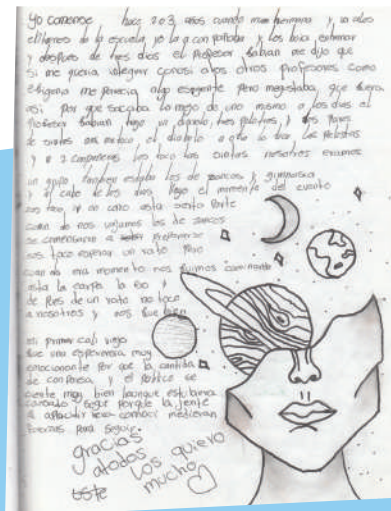 Yo comense hace 2 o 3 años cuando mi hermana y yo
de la escuela, yo la acompañaba y los beia entrenar
y despues de tres dias el profesor Fabian me dijo que
si me queria integrar conosi a los otros profesores como
me parecia algo esijente pero me gustaba que fuera
asi por que sacaba lo mejor de uno mismo a los dias el
profesor Fabian trajo un diabolo, tres pelotitas, y dos pares
de cintas a mi me toco el diabolo a otro le toco las Pelotitas
y a 2 compañeros les toco las cintas nosotros eramos
un grupo tambien estaba los de zancos y gimnasia
y al cabo de los dias llego el momento del evento
nos toco ir en carro asta sierta parte
cuando nos bajamos los de zancos
se comensaron a prepararse
nos toco esperar un rato pero
cuando era momento nos fuimos caminando
asta la carpa la 50 y
despues de un rato no toco
a nosotros y nos fue bien
mi primer cali viejo
fue una esperiensia muy
emocionante por que la cantida
de conparsa, y el publico se
siente muy bien haunque este
cansado y segir porque la jente
al aplaudir
fuerzas para seguir.
gracias
atodos
los quiero
mucho